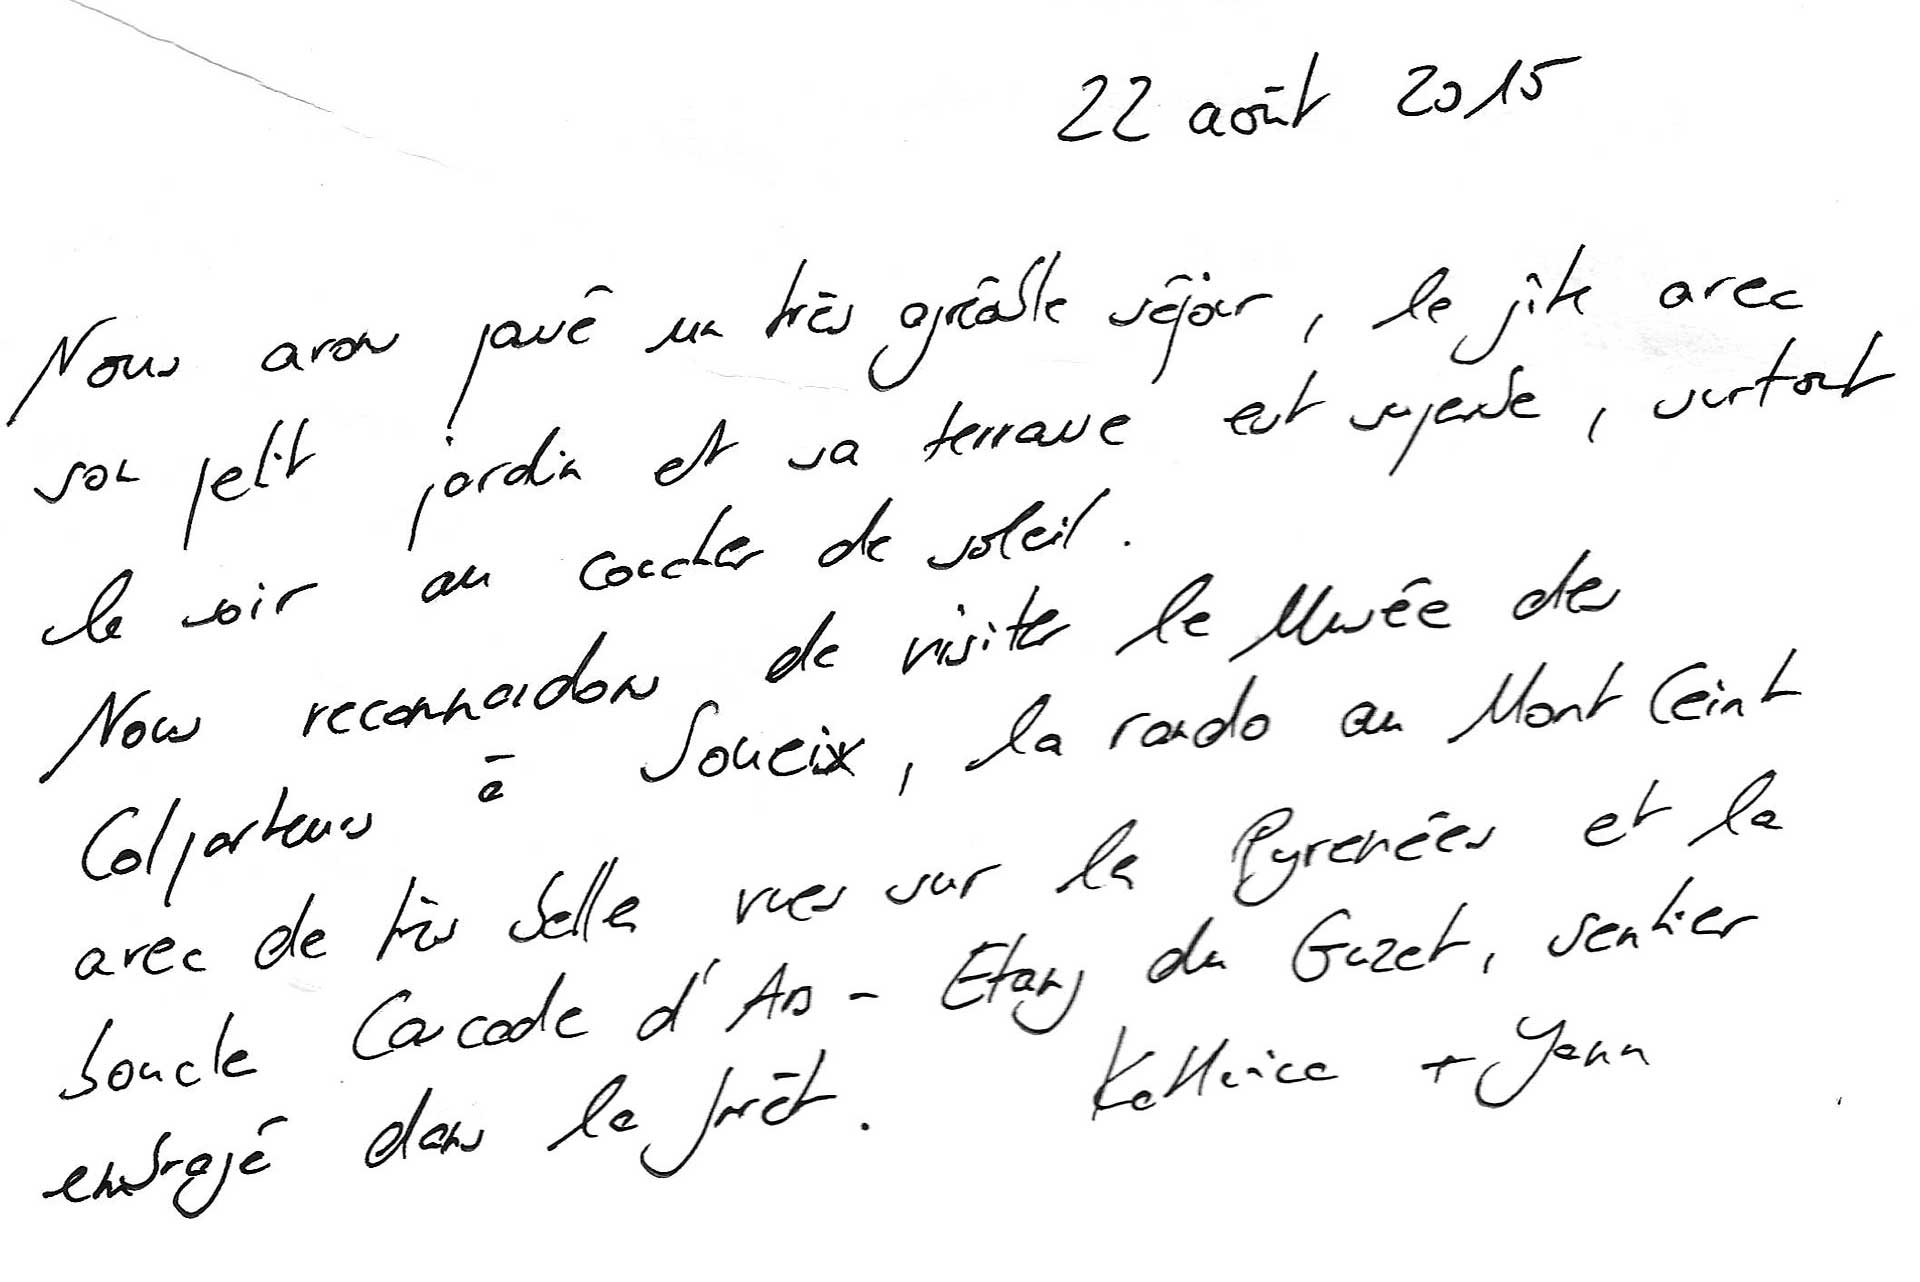 22 août 2015
Nous avons passé un très agréable séjour, le gîte avec
son petit jardin et sa terrasse est superbe, surtout
le soir au coucher de soleil.
Nous recommandons de visiter le Musée des
Colporteurs à Soueix, la rando au Mont Ceint
avec de très belles vues sur les Pyrenées et la
boucle Cascade d'Ars - Etang du Guzet, sentier
ombragé dans la forêt. + Yann